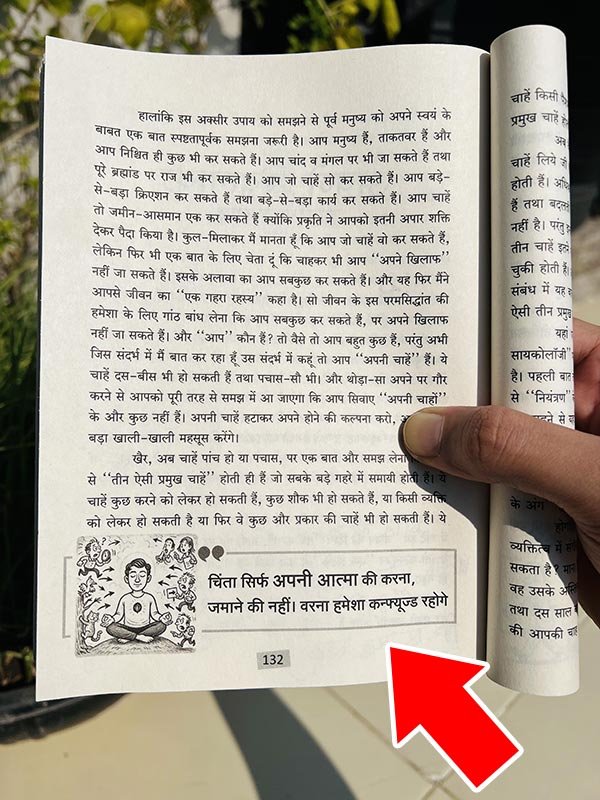 हालांकि इस अक्सीर उपाय को समझने से पूर्व मनुष्य को अपने स्वयं के
बाबत एक बात स्पष्टतापूर्वक समझना जरूरी है। आप मनुष्य हैं, ताकतवर हैं और
आप निश्चित ही कुछ भी कर सकते हैं। आप चांद व मंगल पर भी जा सकते हैं तथा
पूरे ब्रह्मांड पर राज भी कर सकते हैं। आप जो चाहें सो कर सकते हैं। आप बड़े-
से-बड़ा क्रिएशन कर सकते हैं तथा बड़े-से-बड़ा कार्य कर सकते हैं। आप चाहें
तो जमीन-आसमान एक कर सकते हैं क्योंकि प्रकृति ने आपको इतनी अपार शक्ति
देकर पैदा किया है। कुल-मिलाकर मैं मानता हूँ कि आप जो चाहें वो कर सकते हैं,
लेकिन फिर भी एक बात के लिए चेता दूं कि चाहकर भी आप “अपने खिलाफ”
नहीं जा सकते हैं। इसके अलावा का आप सबकुछ कर सकते हैं। और यह फिर मैंने
आपसे जीवन का “एक गहरा रहस्य” कहा है। सो जीवन के इस परमसिद्धांत की
हमेशा के लिए गांठ बांध लेना कि आप सबकुछ कर सकते हैं, पर अपने खिलाफ
नहीं जा सकते हैं। और “आप” कौन हैं? तो वैसे तो आप बहुत कुछ हैं, परंतु अभी
जिस संदर्भ में मैं बात कर रहा हूँ उस संदर्भ में कहूं तो आप “अपनी चाहें” हैं। ये
चाहें दस-बीस भी हो सकती हैं तथा पचास-सौ भी। और थोड़ा-सा अपने पर गौर
करने से आपको पूरी तरह से समझ में आ जाएगा कि आप सिवाए “अपनी चाहों”
के और कुछ नहीं हैं। अपनी चाहें हटाकर अपने होने की कल्पना करो,
बड़ा खाली-खाली महसूस करेंगे।
खैर, अब चाहें पांच हो या पचास, पर एक बात और समझ लेना
से “तीन ऐसी प्रमुख चाहें” होती ही हैं जो सबके बड़े गहरे में समायी होती हैं। ये
चाहें कुछ करने को लेकर हो सकती हैं, कुछ शौक भी हो सकते हैं, या किसी व्यक्ति
को लेकर हो सकती है या फिर वे कुछ और प्रकार की चाहें भी हो सकती हैं। ये
चिंता सिर्फ अपनी आत्मा की करना,
जमाने की नहीं। वरना हमेशा कन्फ्यूज्ड रहोगे
132
चाहें किसी
प्रमुख चाहें
अब
चाहें लिये जी
होती हैं।
हैं तथा बदलते
नहीं है। परंतु
तीन चाहें इतने
चुकी होती हैं।
संबंध में यह
ऐसी तीन प्रमुख
यहां
सायकोलॉजी”
है। पहली बात
से “नियंत्रण”
के अंग
व्यक्तित्व में
सकता है? मान
वह उसके
तथा दस साल
की आपकी